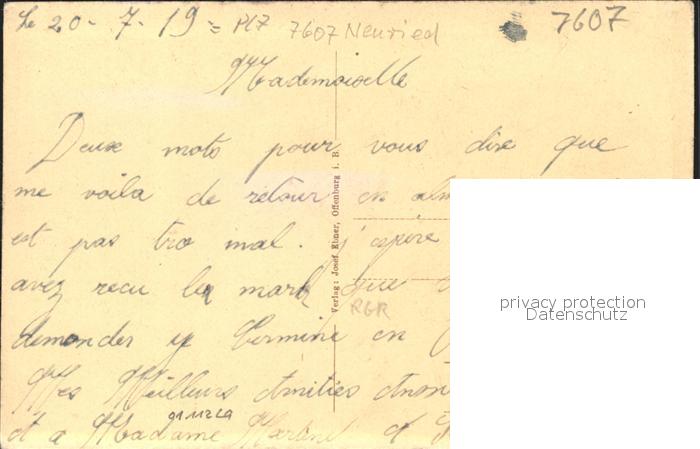 le 20-7-19= PLZ 7607 Neuried 7607
Mademoiselle
Deux mots pour vous dire que
me voila de retour en alm
est pas tro mal. j'espère
avez recu les mark que
demander je termine en
Mes Meilleurs Amitiés
et a Madame
Verlag: Josef Ebner, Offenburg i. B.
RGR
privacy protection
Datenschutz